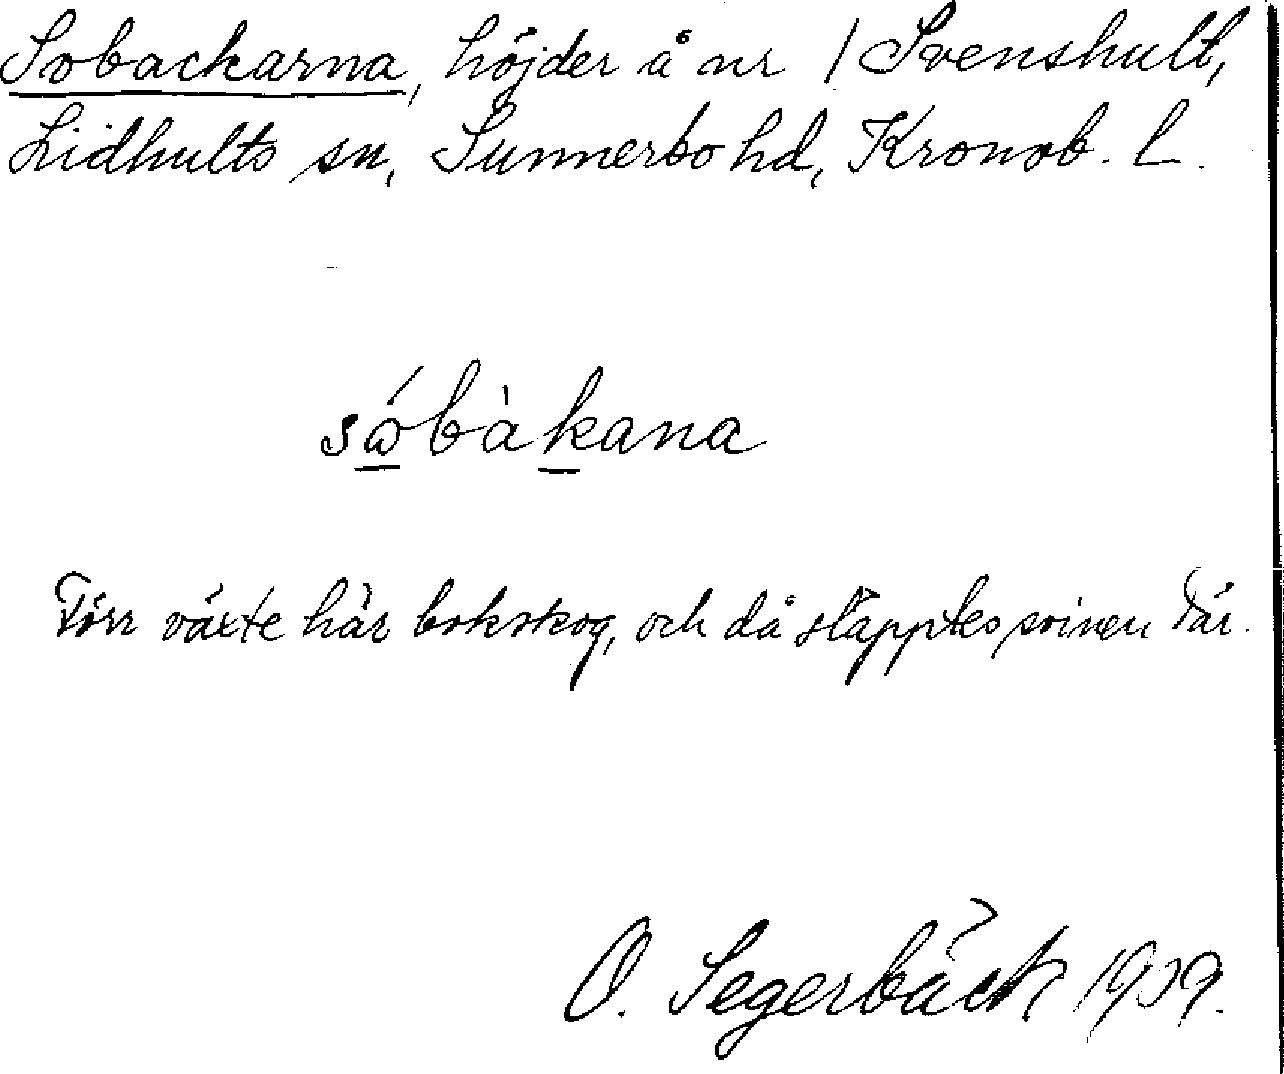 Sobackarna, höjder å nr 1 Svenshult,
Lidhults sn, Sunnerbo hd, Kronob. L.
sώbàkana
Förr växte här bokskog, och då släpptes svinen där.
O. Segerbäck 1909.